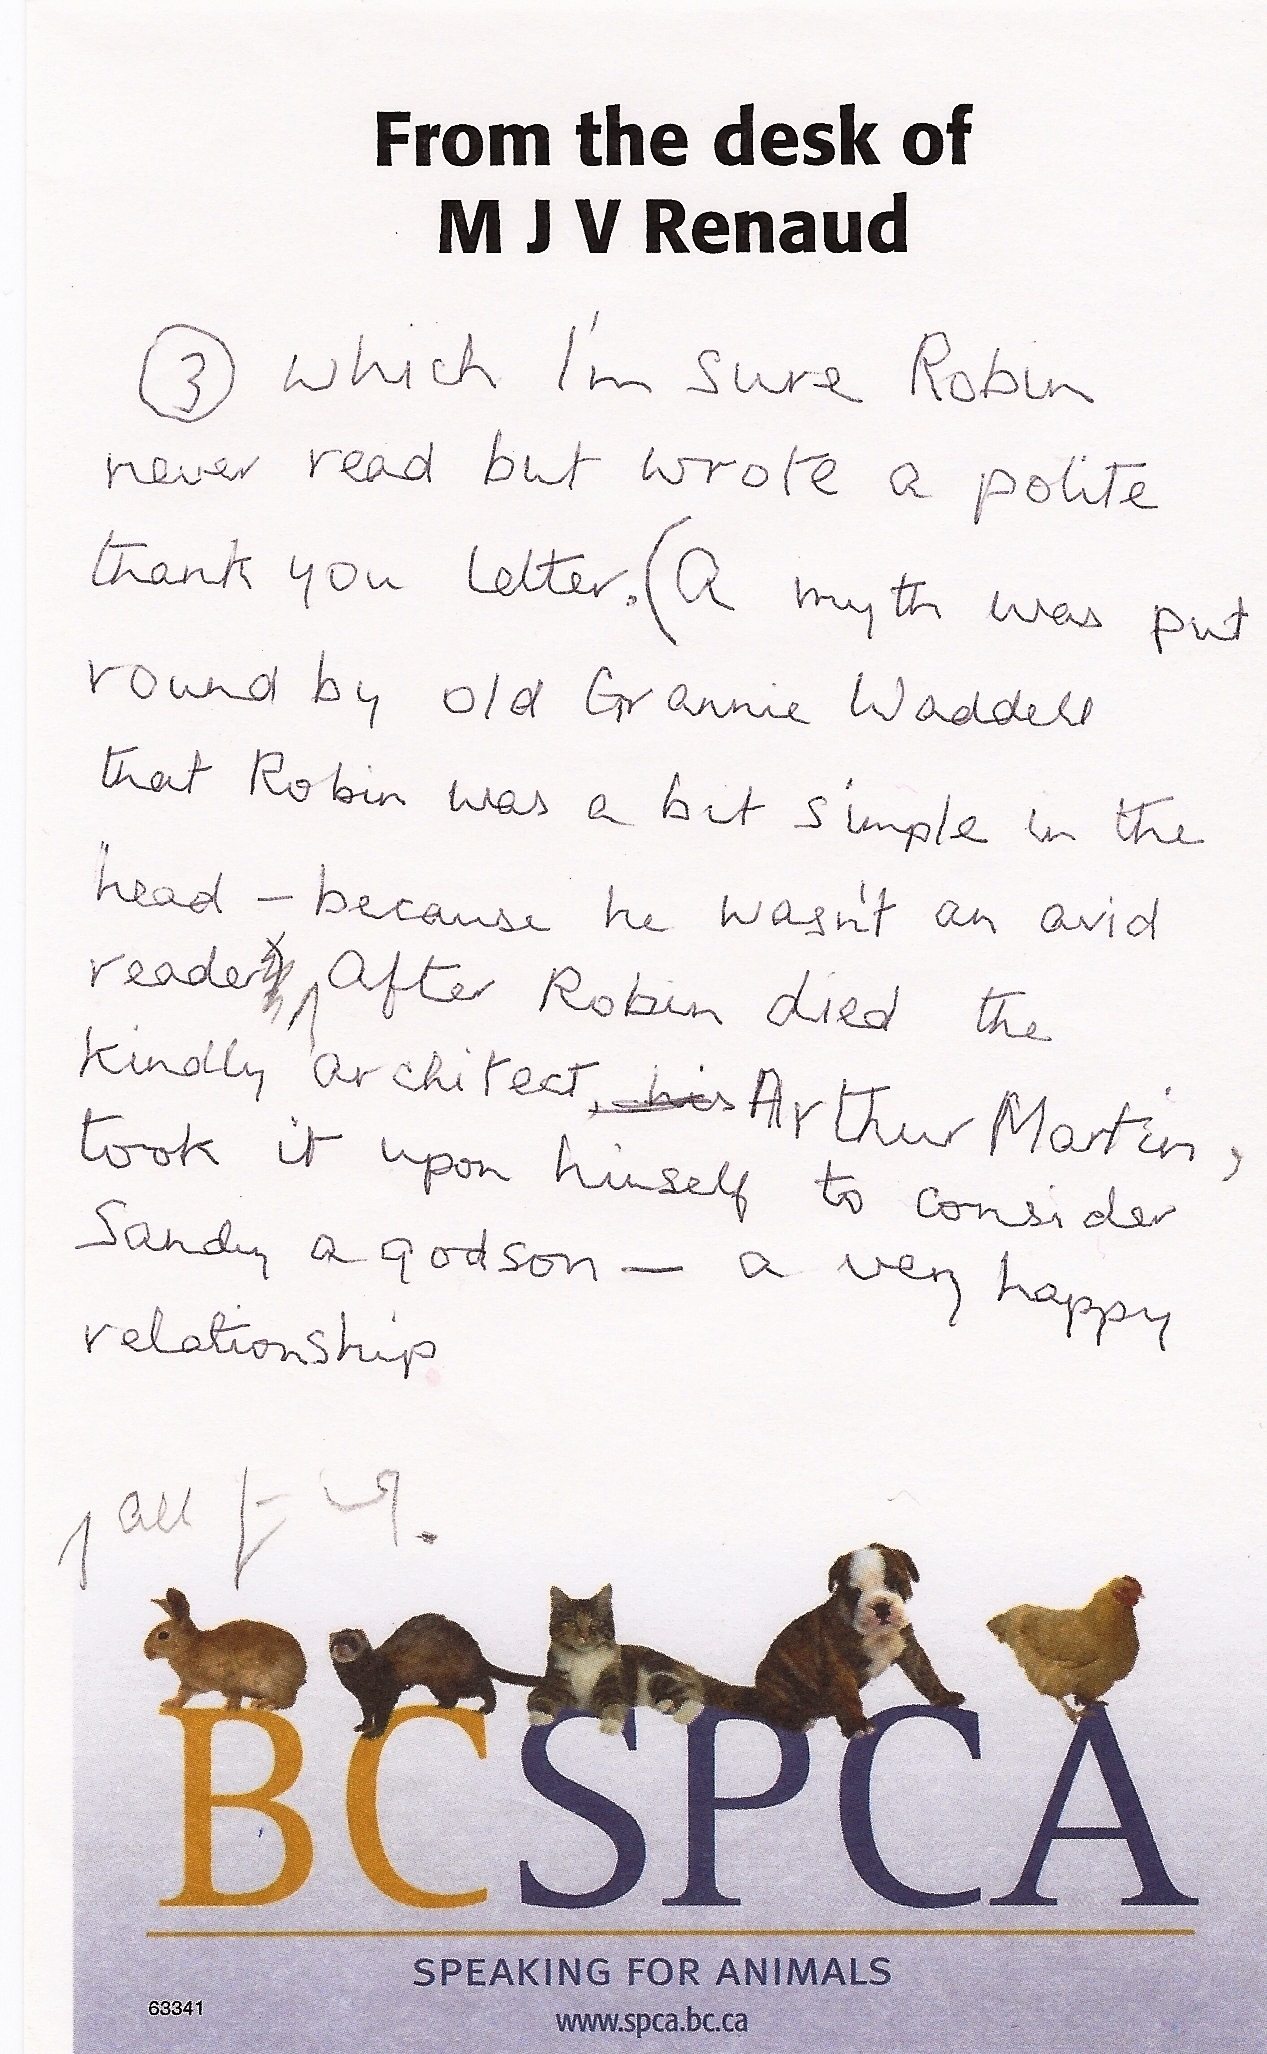 From the desk of
M J V Renaud
③ which I'm sure Robin
never read but wrote a polite
thank you letter. (A myth was put
round by old Grannie Waddell
that Robin was a bit simple in the
head – because he wasn't an avid
reader) After Robin died the
kindly architect, his Arthur Martin,
took it upon himself to consider
Sandy a godson — a very happy
relationship
all
BCSPCA
SPEAKING FOR ANIMALS
63341
www.spca.bc.ca